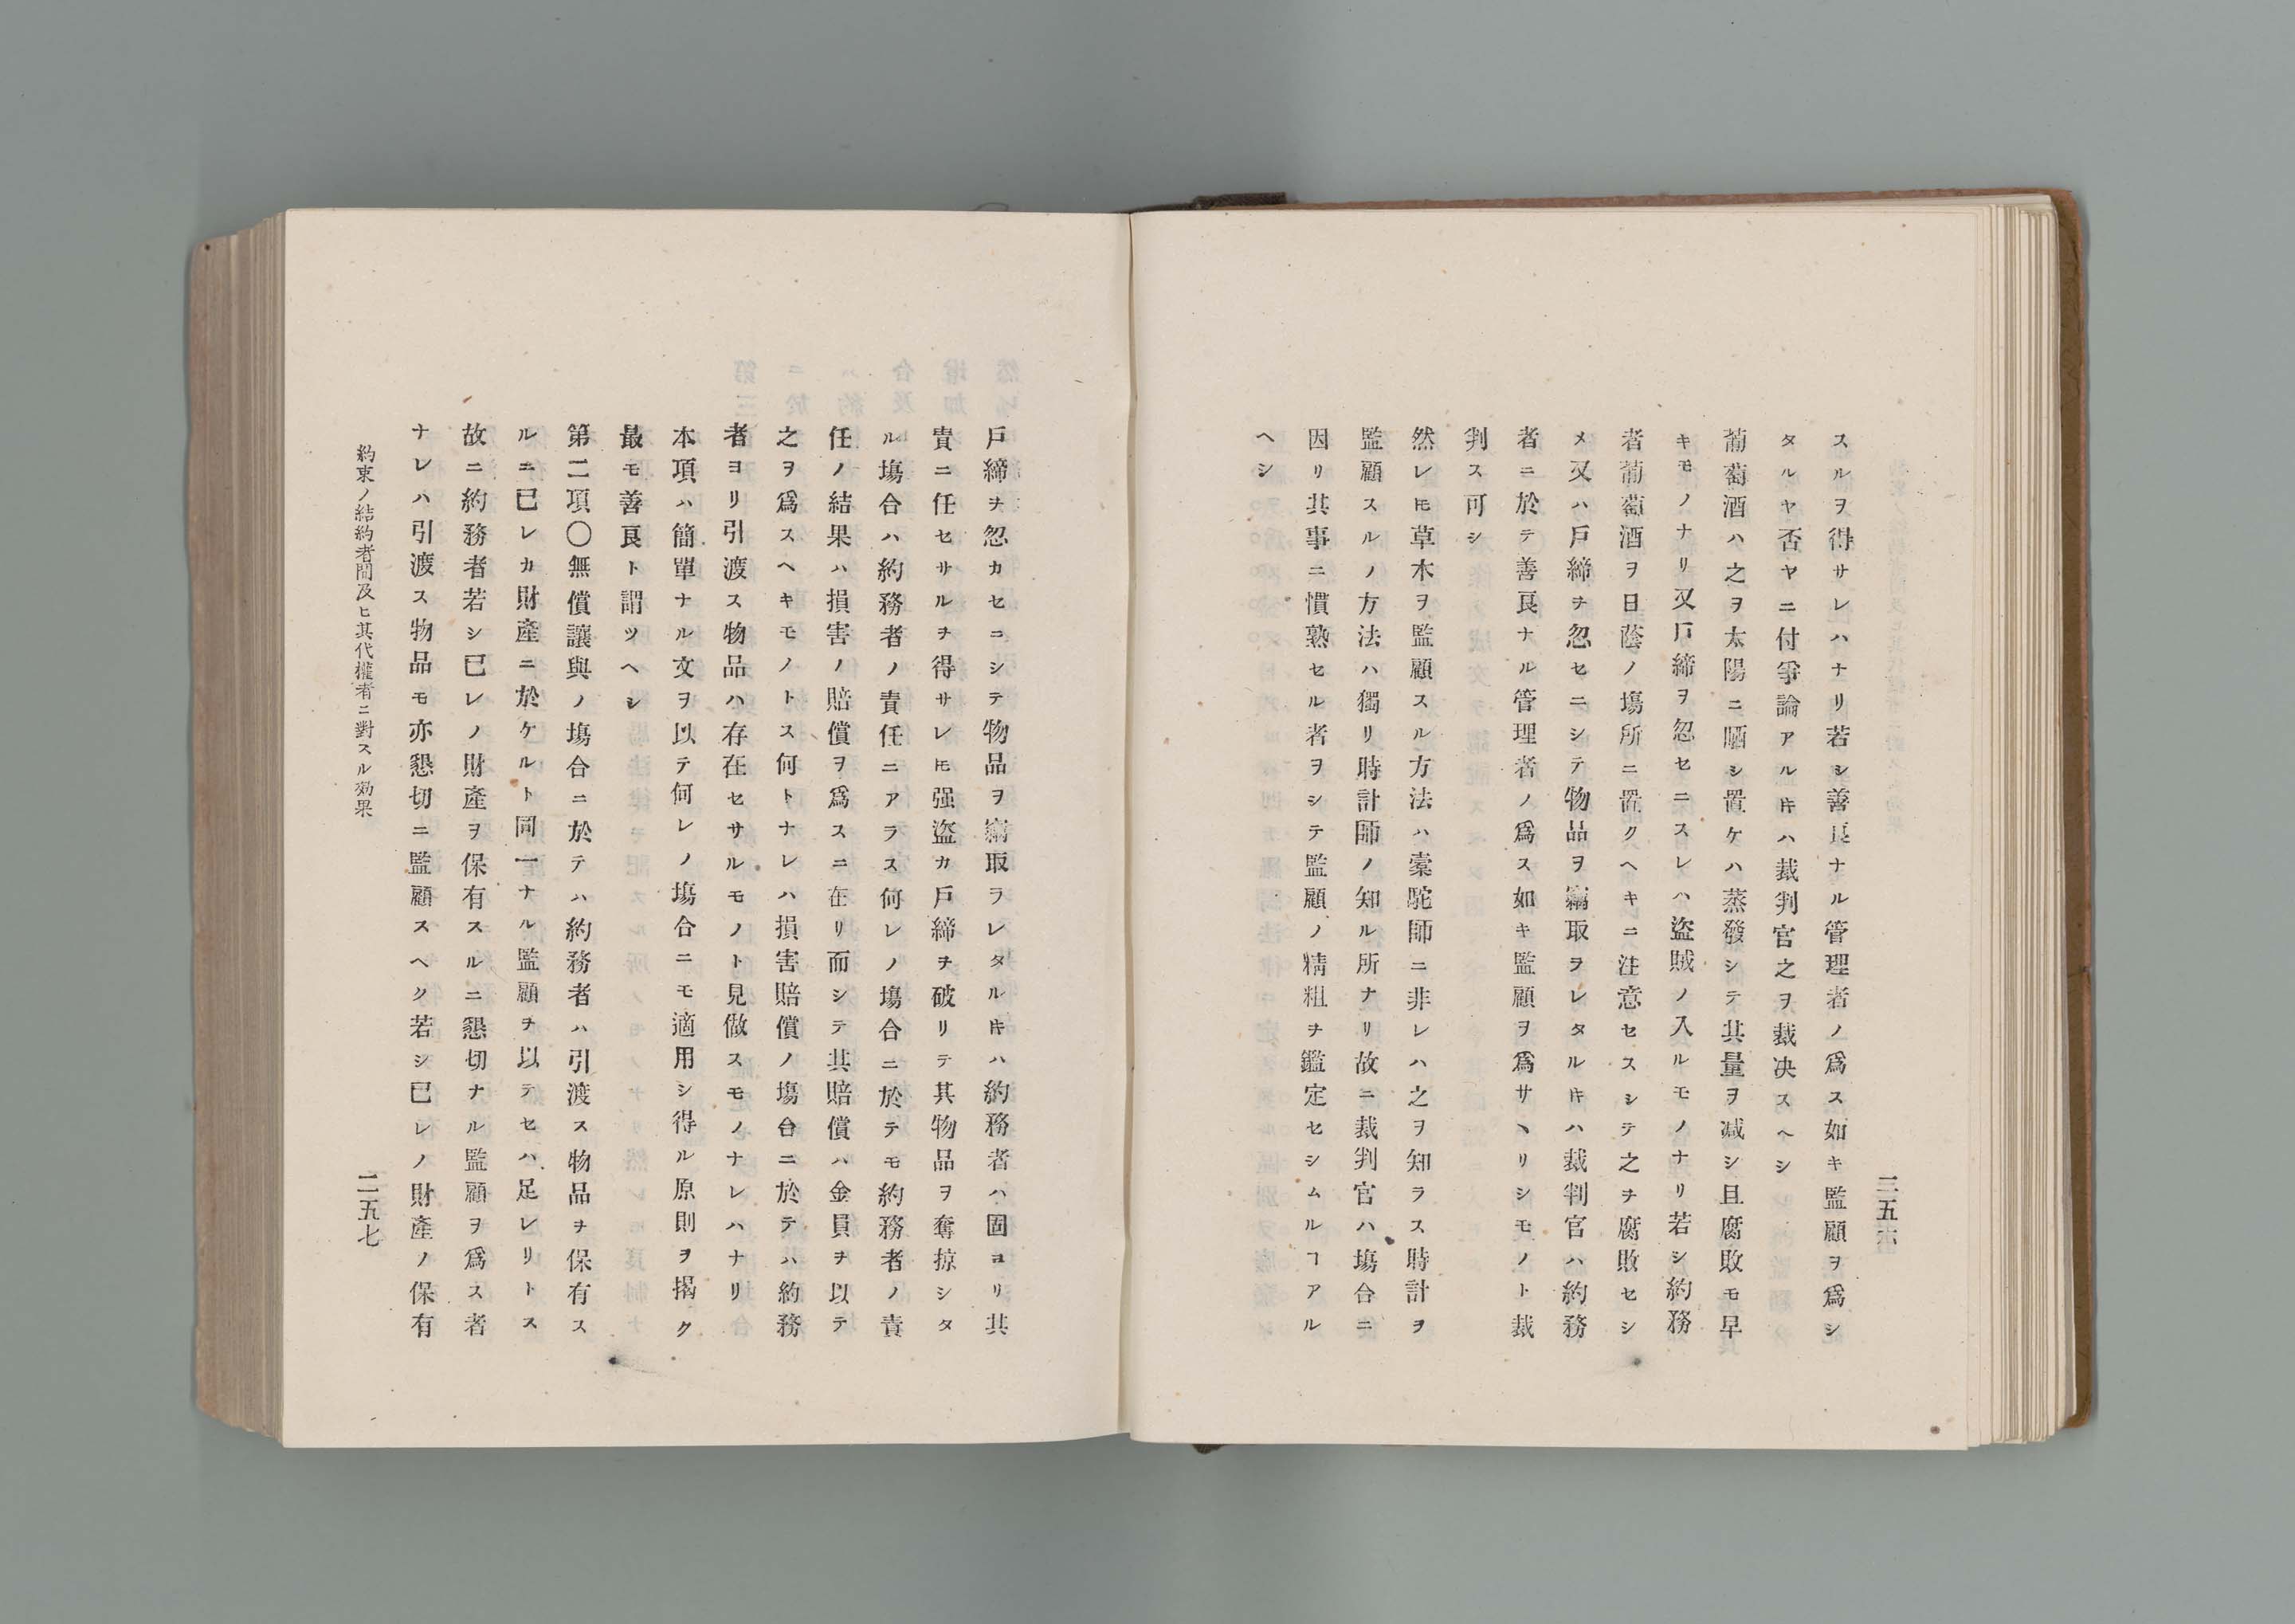 二五六
スルヲ得サレハナリ若シ善良ナル管理者ノ爲ス如キ監顧ヲ爲シ
タルヤ否ヤニ付爭論アルキハ裁判官之ヲ裁决スヘシ
葡萄酒ハ之ヲ太陽ニ晒シ置ケハ蒸發シテ其量ヲ减シ且腐敗モ早
キモノナリ又戸締ヲ忽セニスレハ盜賊ノ入ルモノナリ若シ約務
者葡萄酒ヲ日蔭ノ塲所ニ置クヘキニ注意セスシテ之ヲ腐敗セシ
メ又ハ戸締ヲ忽セニシテ物品ヲ竊取ヲレタルキハ裁判官ハ約務
者ニ於テ善良ナル管理者ノ爲ス如キ監顧ヲ爲サヽリシモノト裁
判ス可シ
然レ𪜈草木ヲ監顧スル方法ハ槖駝師ニ非レハ之ヲ知ラス時計ヲ
監顧スルノ方法ハ獨リ時計師ノ知ル所ナリ故ニ裁判官ハ塲合ニ
因リ其事ニ慣熟セル者ヲシテ監顧ノ精粗ヲ鑑定セシムルヿアル
ヘシ
戸締ヲ忽カセニシテ物品ヲ竊取ラレタルキハ約務者ハ固ヨリ其
責ニ任セサルヲ得サレ𪜈强盜カ戸締ヲ破リテ其物品ヲ奪掠シタ
ル塲合ハ約務者ノ責任ニアラス何レノ塲合ニ於テモ約務者ノ責
任ノ結果ハ損害ノ賠償ヲ爲スニ在リ而シテ其賠償ハ金員ヲ以テ
之ヲ爲スヘキモノトス何トナレハ損害賠償ノ塲合ニ於テハ約務
者ヨリ引渡ス物品ハ存在セサルモノト見做スモノナレハナリ
本項ハ簡單ナル文ヲ以テ何レノ塲合ニモ適用シ得ル原則ヲ揭ク
最モ善良ト謂ツヘシ
第二項〇無償讓與ノ塲合ニ於テハ約務者ハ引渡ス物品ヲ保有ス
ルニ已レカ財產ニ於ケルト同一ナル監顧ヲ以テセハ足レリトス
故ニ約務者若シ已レノ財產ヲ保有スルニ懇切ナル監顧ヲ爲ス者
ナレハ引渡ス物品モ亦懇切ニ監顧スヘク若シ已レノ財產ノ保有
約束ノ結約者間及ヒ其代權者ニ對スル効果
二五七